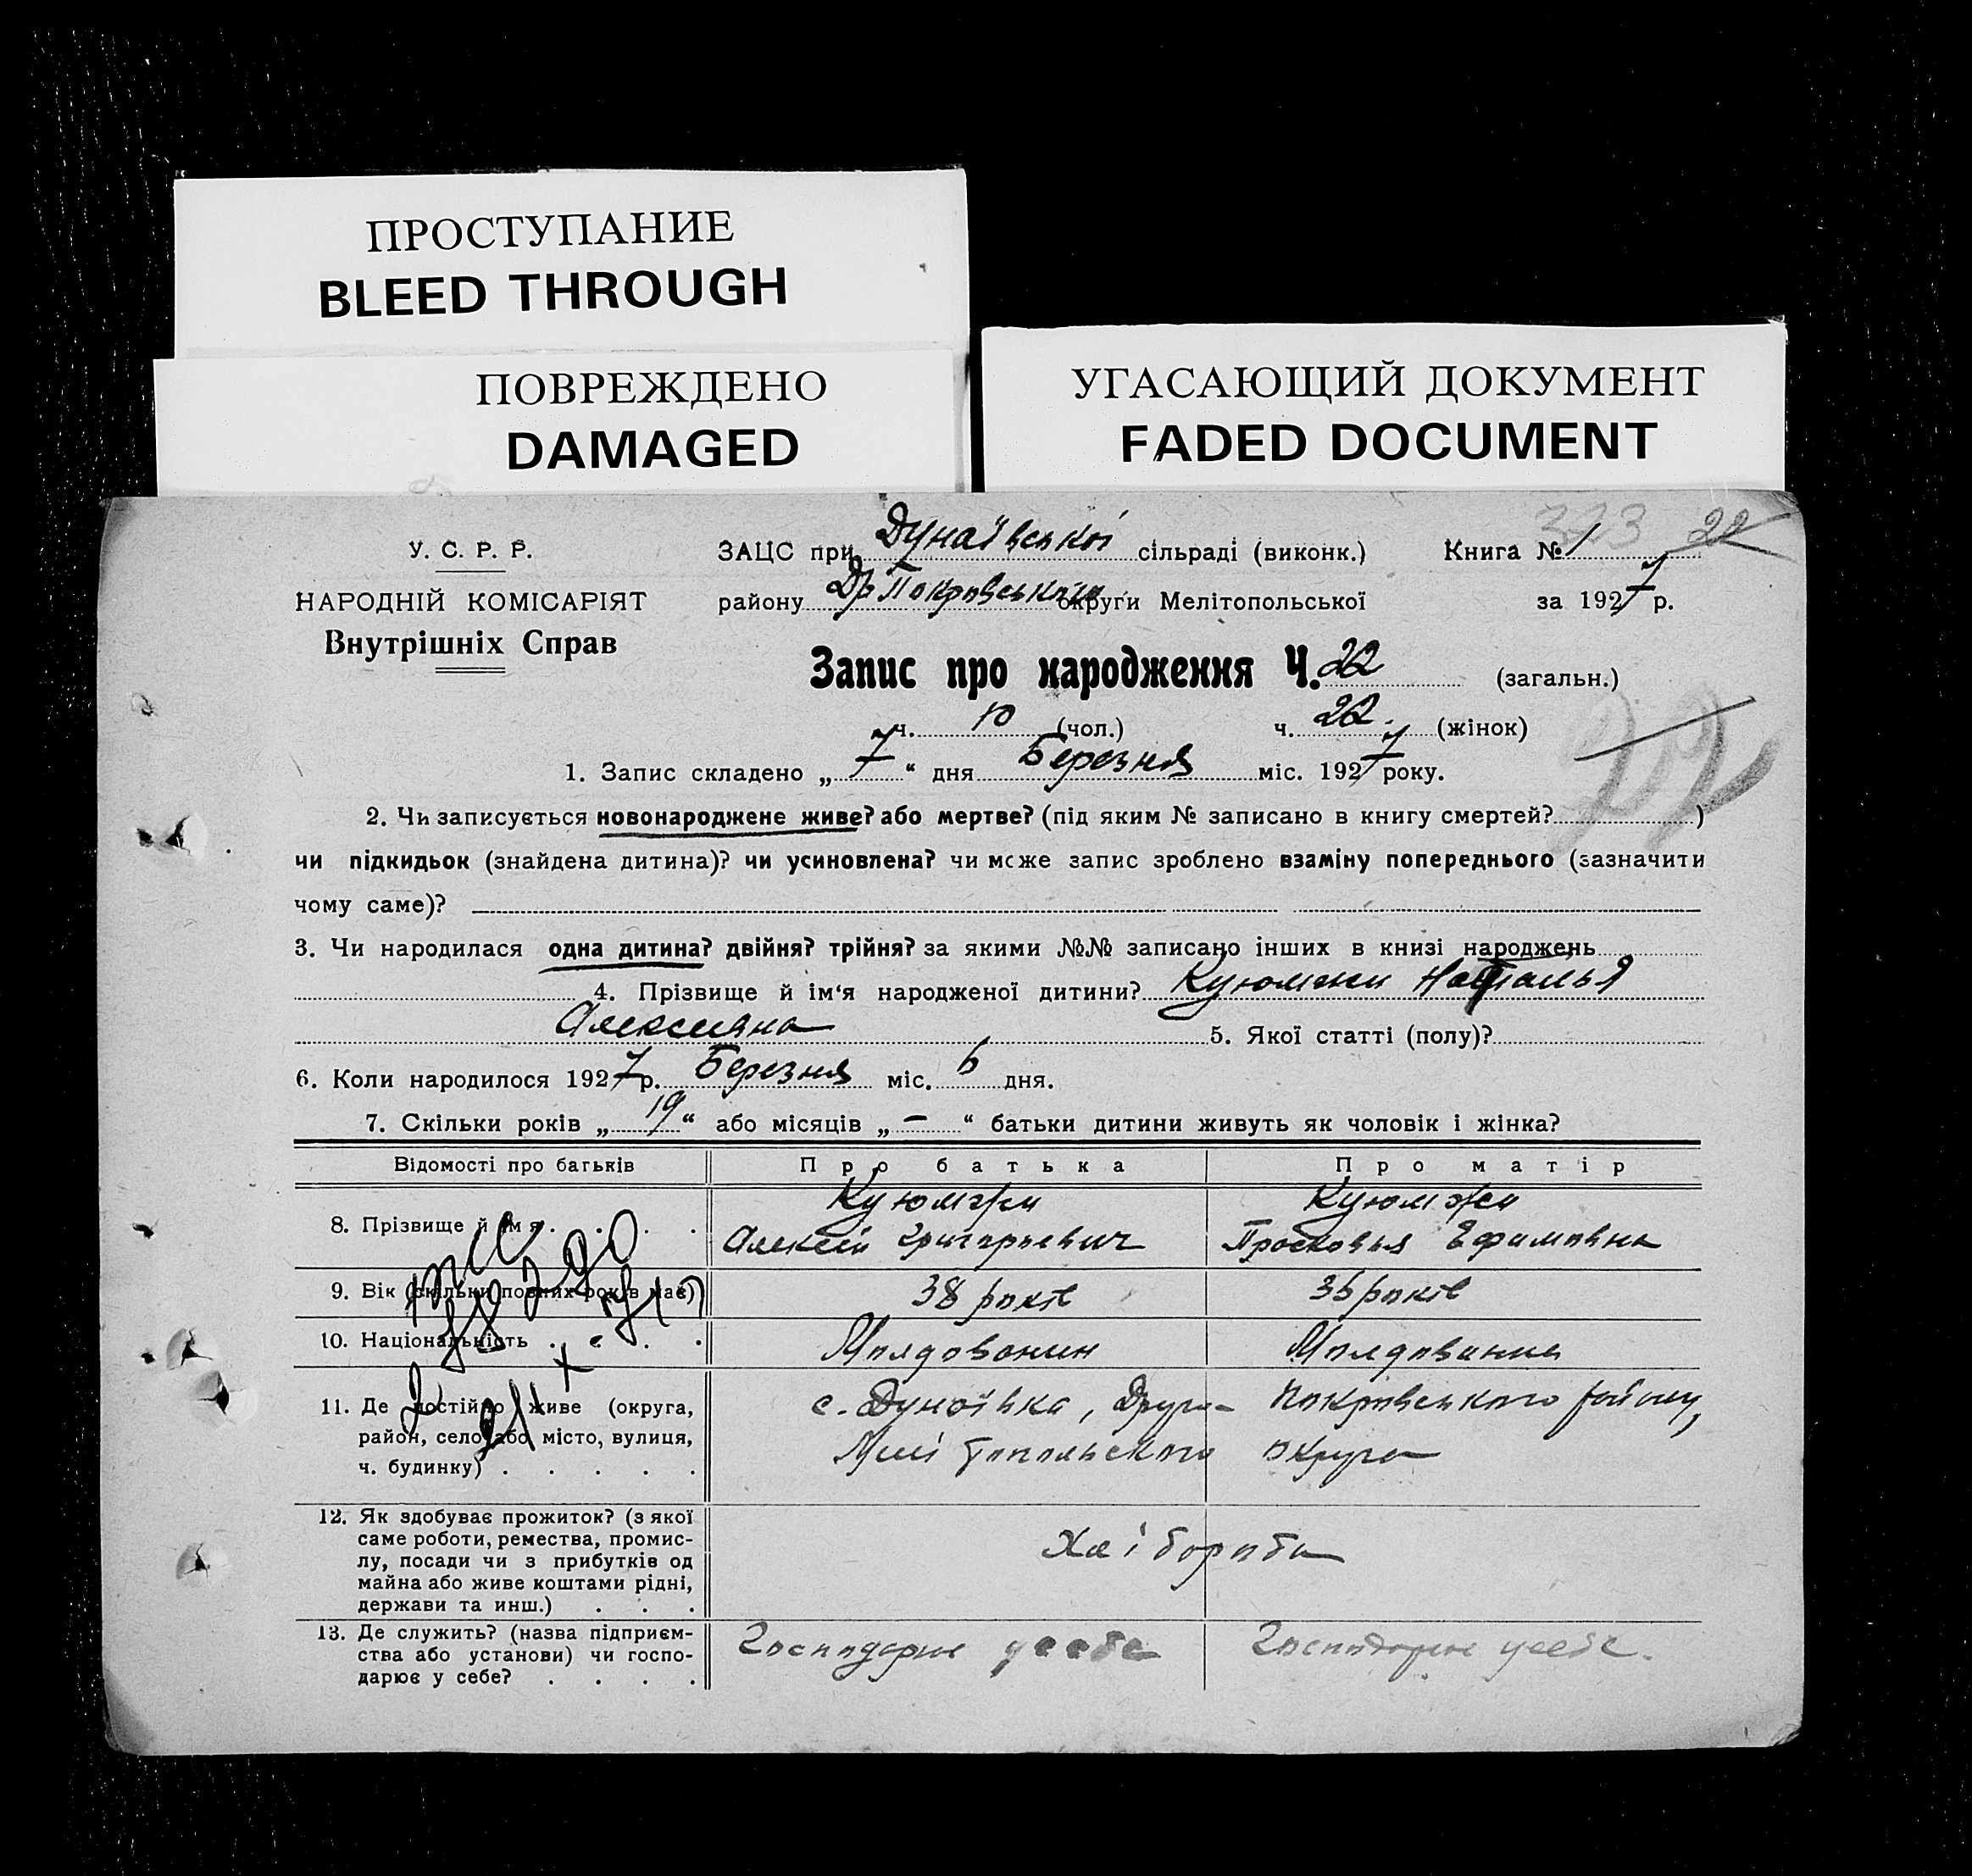 ПРОСТУПАНИЕ
BLEED THROUGH
ПОВРЕЖДЕНО
DAMAGED
УГАСАЮЩИЙ ДОКУМЕНТ
FADED DOCUMENT
323 22
У. С. Р. Р.
НАРОДНІЙ КОМІСАРІЯТ
Внутрішніх Справ
ЗАЦС при Дунаївської сільраді (виконк.) Книга № 1
району Др Покровського округи Мелітопольської за 1927 р.
Запис про народження Ч. 22 (загальн.)
ч. 10 (чол.) ч. 22. (жінок)
22
1. Запис складено „7“ дня Березня міс. 1927 року.
2. Чи записується новонароджене живе? або мертве? (під яким № записано в книгу смертей? )
чи підкидьок (знайдена дитина)? чи усиновлена? чи може запис зроблено взаміну попереднього (зазначити
чому саме)?
3. Чи народилася одна дитина? двійня? трійня? за якими №№ записано інших в книзі народжень
4. Прізвище й ім‘я народженої дитини? Куюмжи Наталья
Алексеяна 5. Якої статті (полу)?
6. Коли народилося 1927 р. Березня міс. 6 дня.
7. Скільки років „19“ або місяців „–“ батьки дитини живуть як чоловік і жінка?
Відомості про батьків Про батька Про матір
8. Прізвище й ім‘я . . . . Куюмжи Куюмжи
Алексей Григорьевич Просковья Ефимовна
9. Вік (скільки повних років має) 38 років 36 років
10. Національність . . . . Молдованин Молдованка
11. Де постійно живе (округа, район, село або місто, вулиця, ч. будинку) . . . . .
с. Дунаївка, Друго- Покровського району,
Мелітопольского округа
12. Як здобуває прожиток? (з якої
саме роботи, ремества, промис-
лу, посади чи з прибутків од
майна або живе коштами рідні,
держави та инш.) . . .
Хліборобы
13. Де служить? (назва підприєм-
ства або установи) чи госпо-
дарює у себе? . . . .
Господарює усебе Господарює усебе.